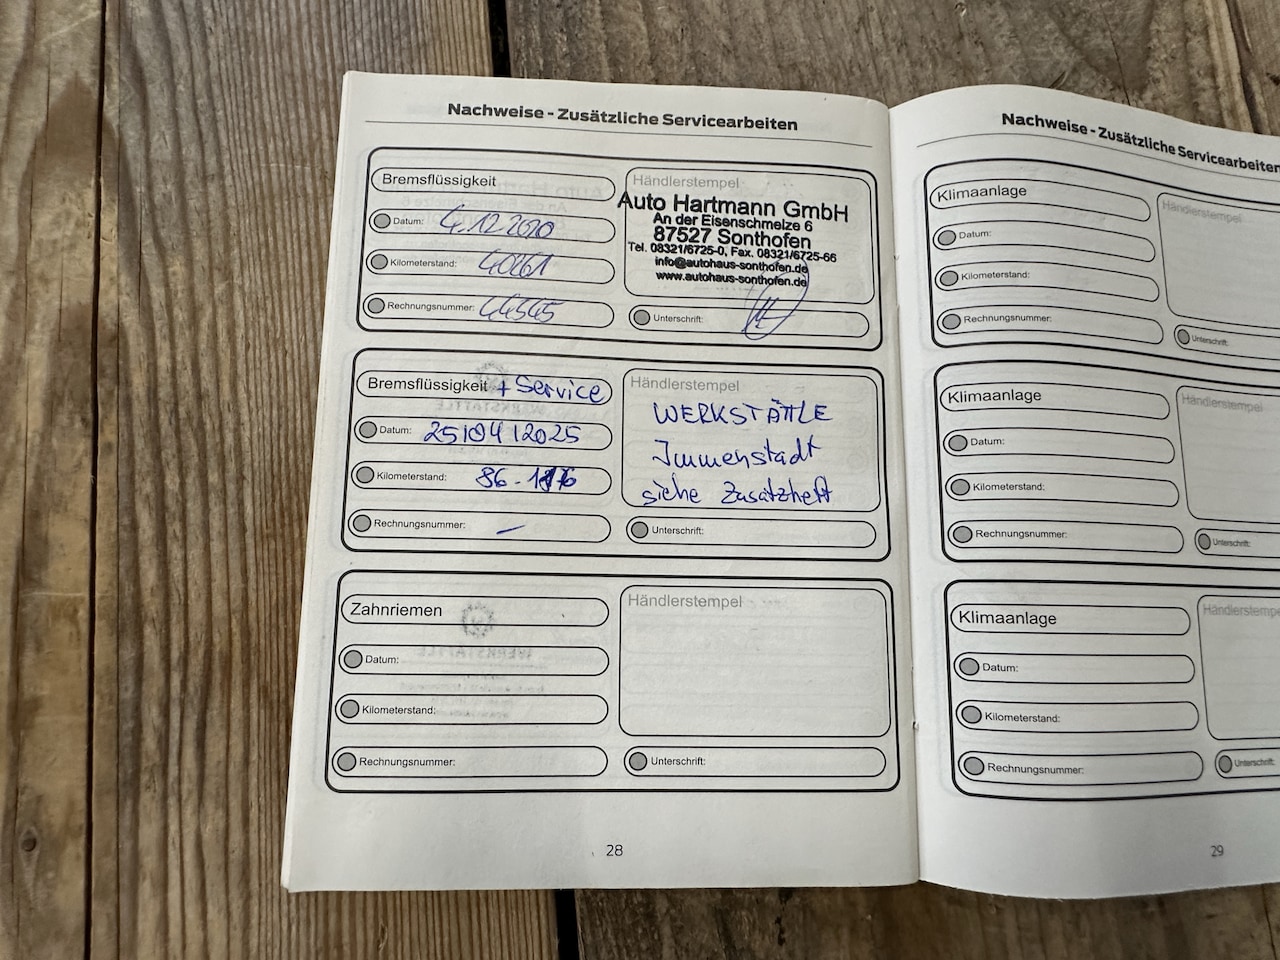 Nachweise - Zusätzliche Servicearbeiten
Bremsflüssigkeit
Datum: 4.12.2020
Kilometerstand: 40261
Rechnungsnummer: 44545
Händlerstempel
Auto Hartmann GmbH
An der Eisenschmelze 6
87527 Sonthofen
Tel. 08321/6725-0, Fax. 08321/6725-66
info@autohaus-sonthofen.de
www.autohaus-sonthofen.de
Unterschrift:
Bremsflüssigkeit + Service
Datum: 25/04/2025
Kilometerstand: 86.
Rechnungsnummer: –
Händlerstempel
WERKSTÄTTLE
Immenstadt
siehe Zusatzheft
Unterschrift:
Zahnriemen
Datum:
Kilometerstand:
Rechnungsnummer:
Händlerstempel
Unterschrift:
28
Nachweise - Zusätzliche Servicearbeiten
Klimaanlage
Datum:
Kilometerstand:
Rechnungsnummer:
Händlerstempel
Unterschrift:
Klimaanlage
Datum:
Kilometerstand:
Rechnungsnummer:
Händlerstempel
Unterschrift:
Klimaanlage
Datum:
Kilometerstand:
Rechnungsnummer:
Händlerstempe
Unterschrift:
29